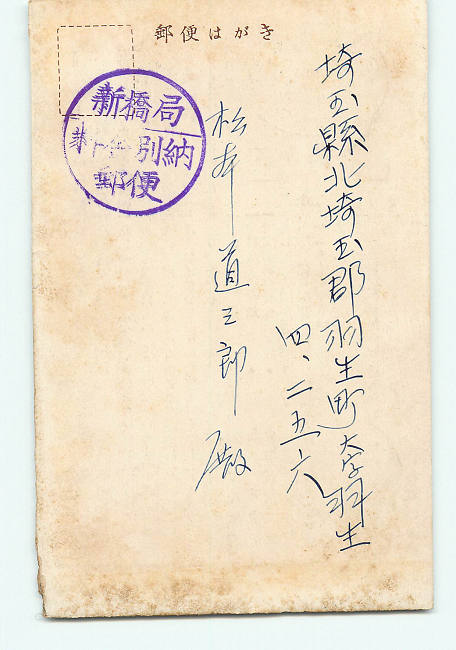 郵便はがき
新橋局
別納
郵便
埼玉縣北埼玉郡羽生町大字羽生
四、二五六
松本道三郎殿